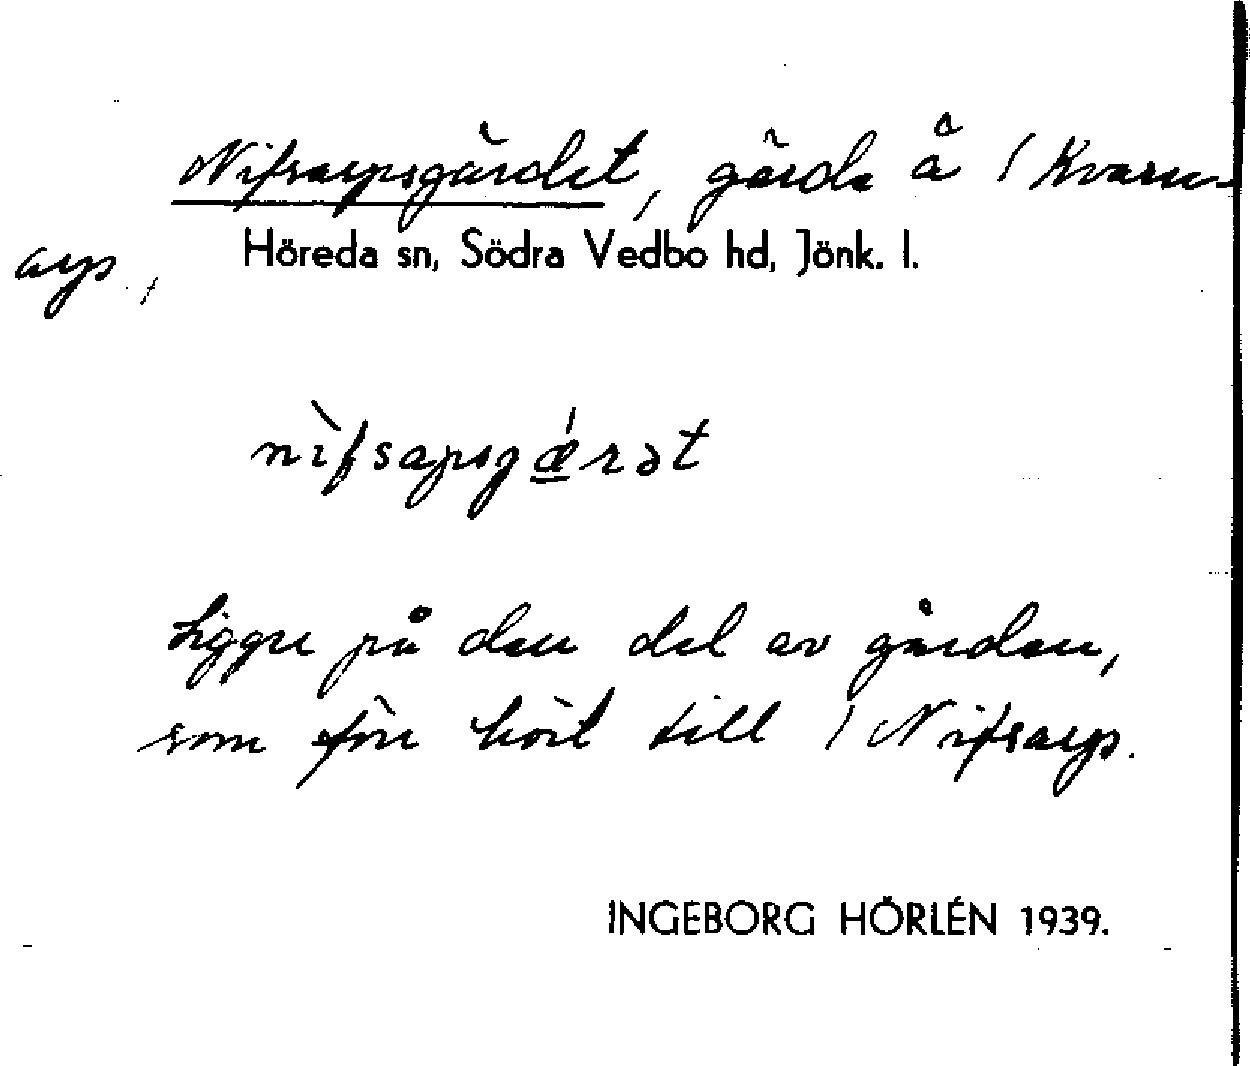 Nifsarpsgärdet, gärde å 1 Kvarn-
arp,
Höreda sn, Södra Vedbo hd, Jönk. l.
nìfsapsgǽrət
Ligger på den del av gården,
som förr hört till 1 Nifsarp.
INGEBORG HÖRLÉN 1939.